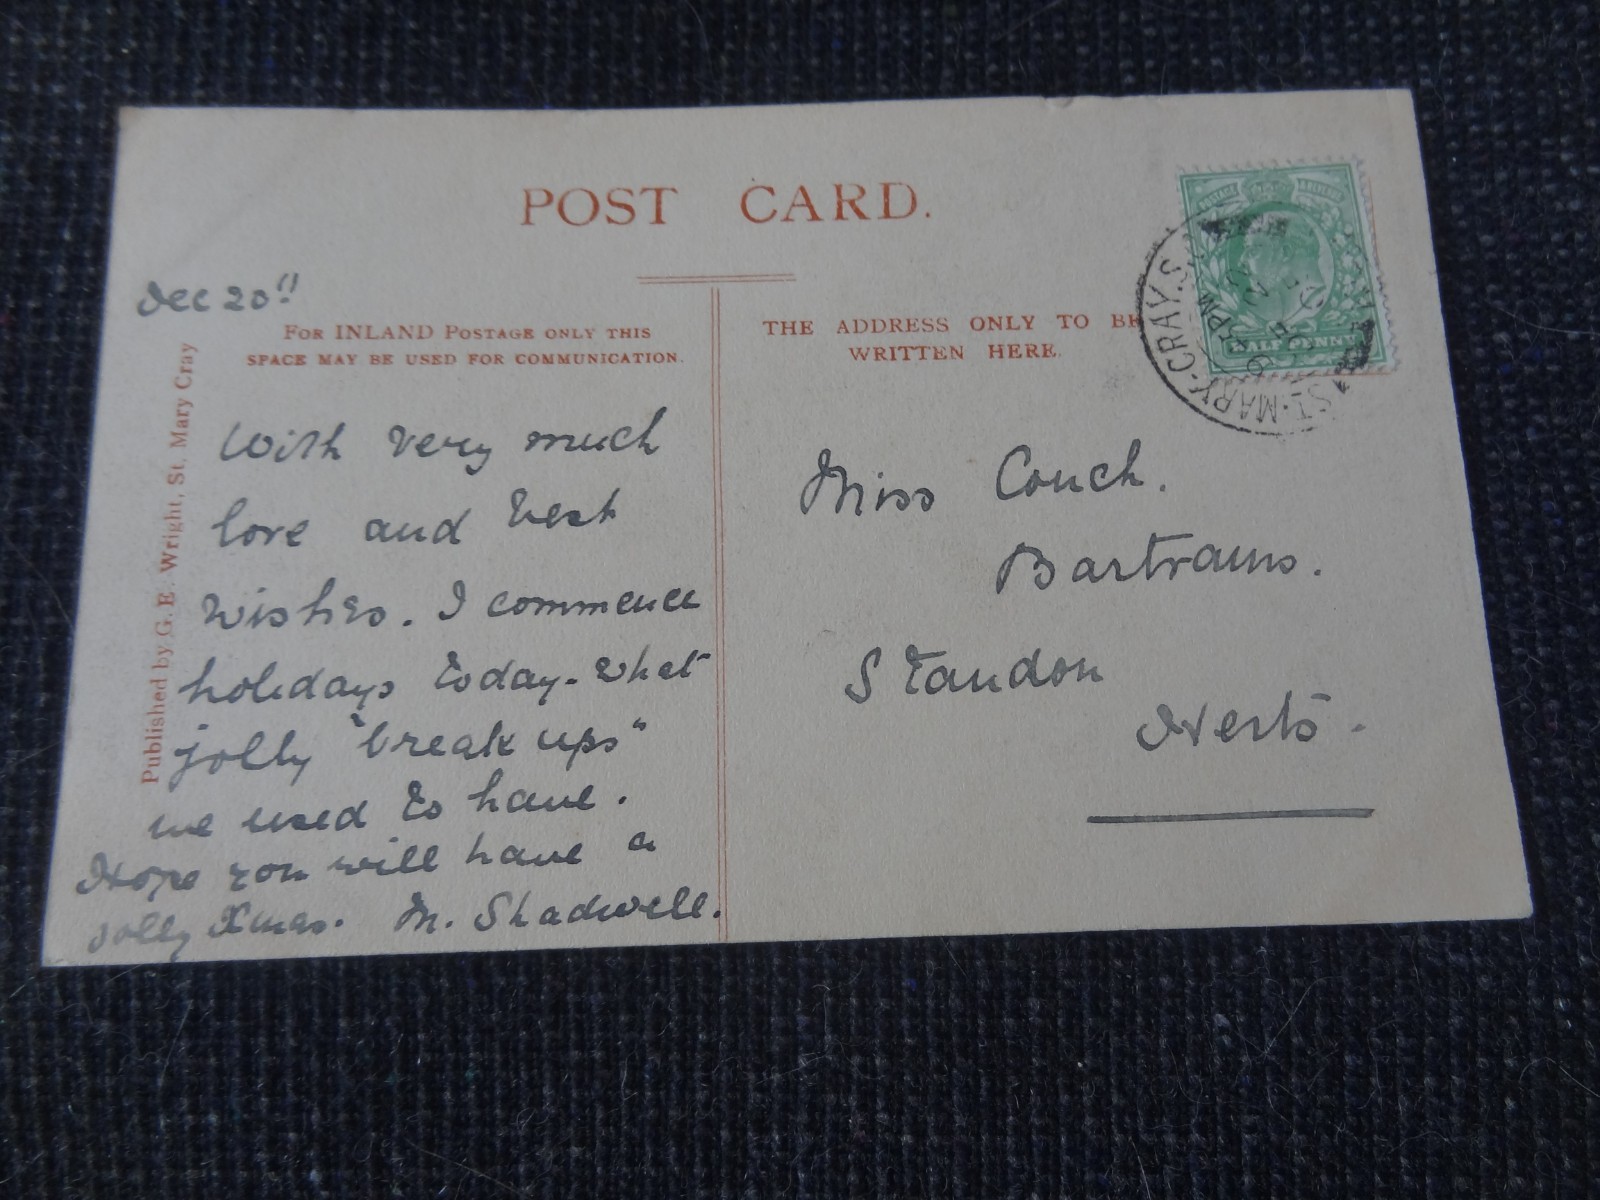 POST CARD.
Dec 20th
FOR INLAND POSTAGE ONLY THIS
SPACE MAY BE USED FOR COMMUNICATION.
THE ADDRESS ONLY TO BE
WRITTEN HERE.
Published by G. E. Wright, St. Mary Cray
With very much
love and best
wishes. I commence
holidays today. What
jolly "break ups"
we used to have.
Hope you will have a
jolly Xmas. M. Shadwell.
Miss Couch.
Bartrams.
Standon
Herts.
HALF PENNY
ST. MARY. CRAY. S.O.
PM